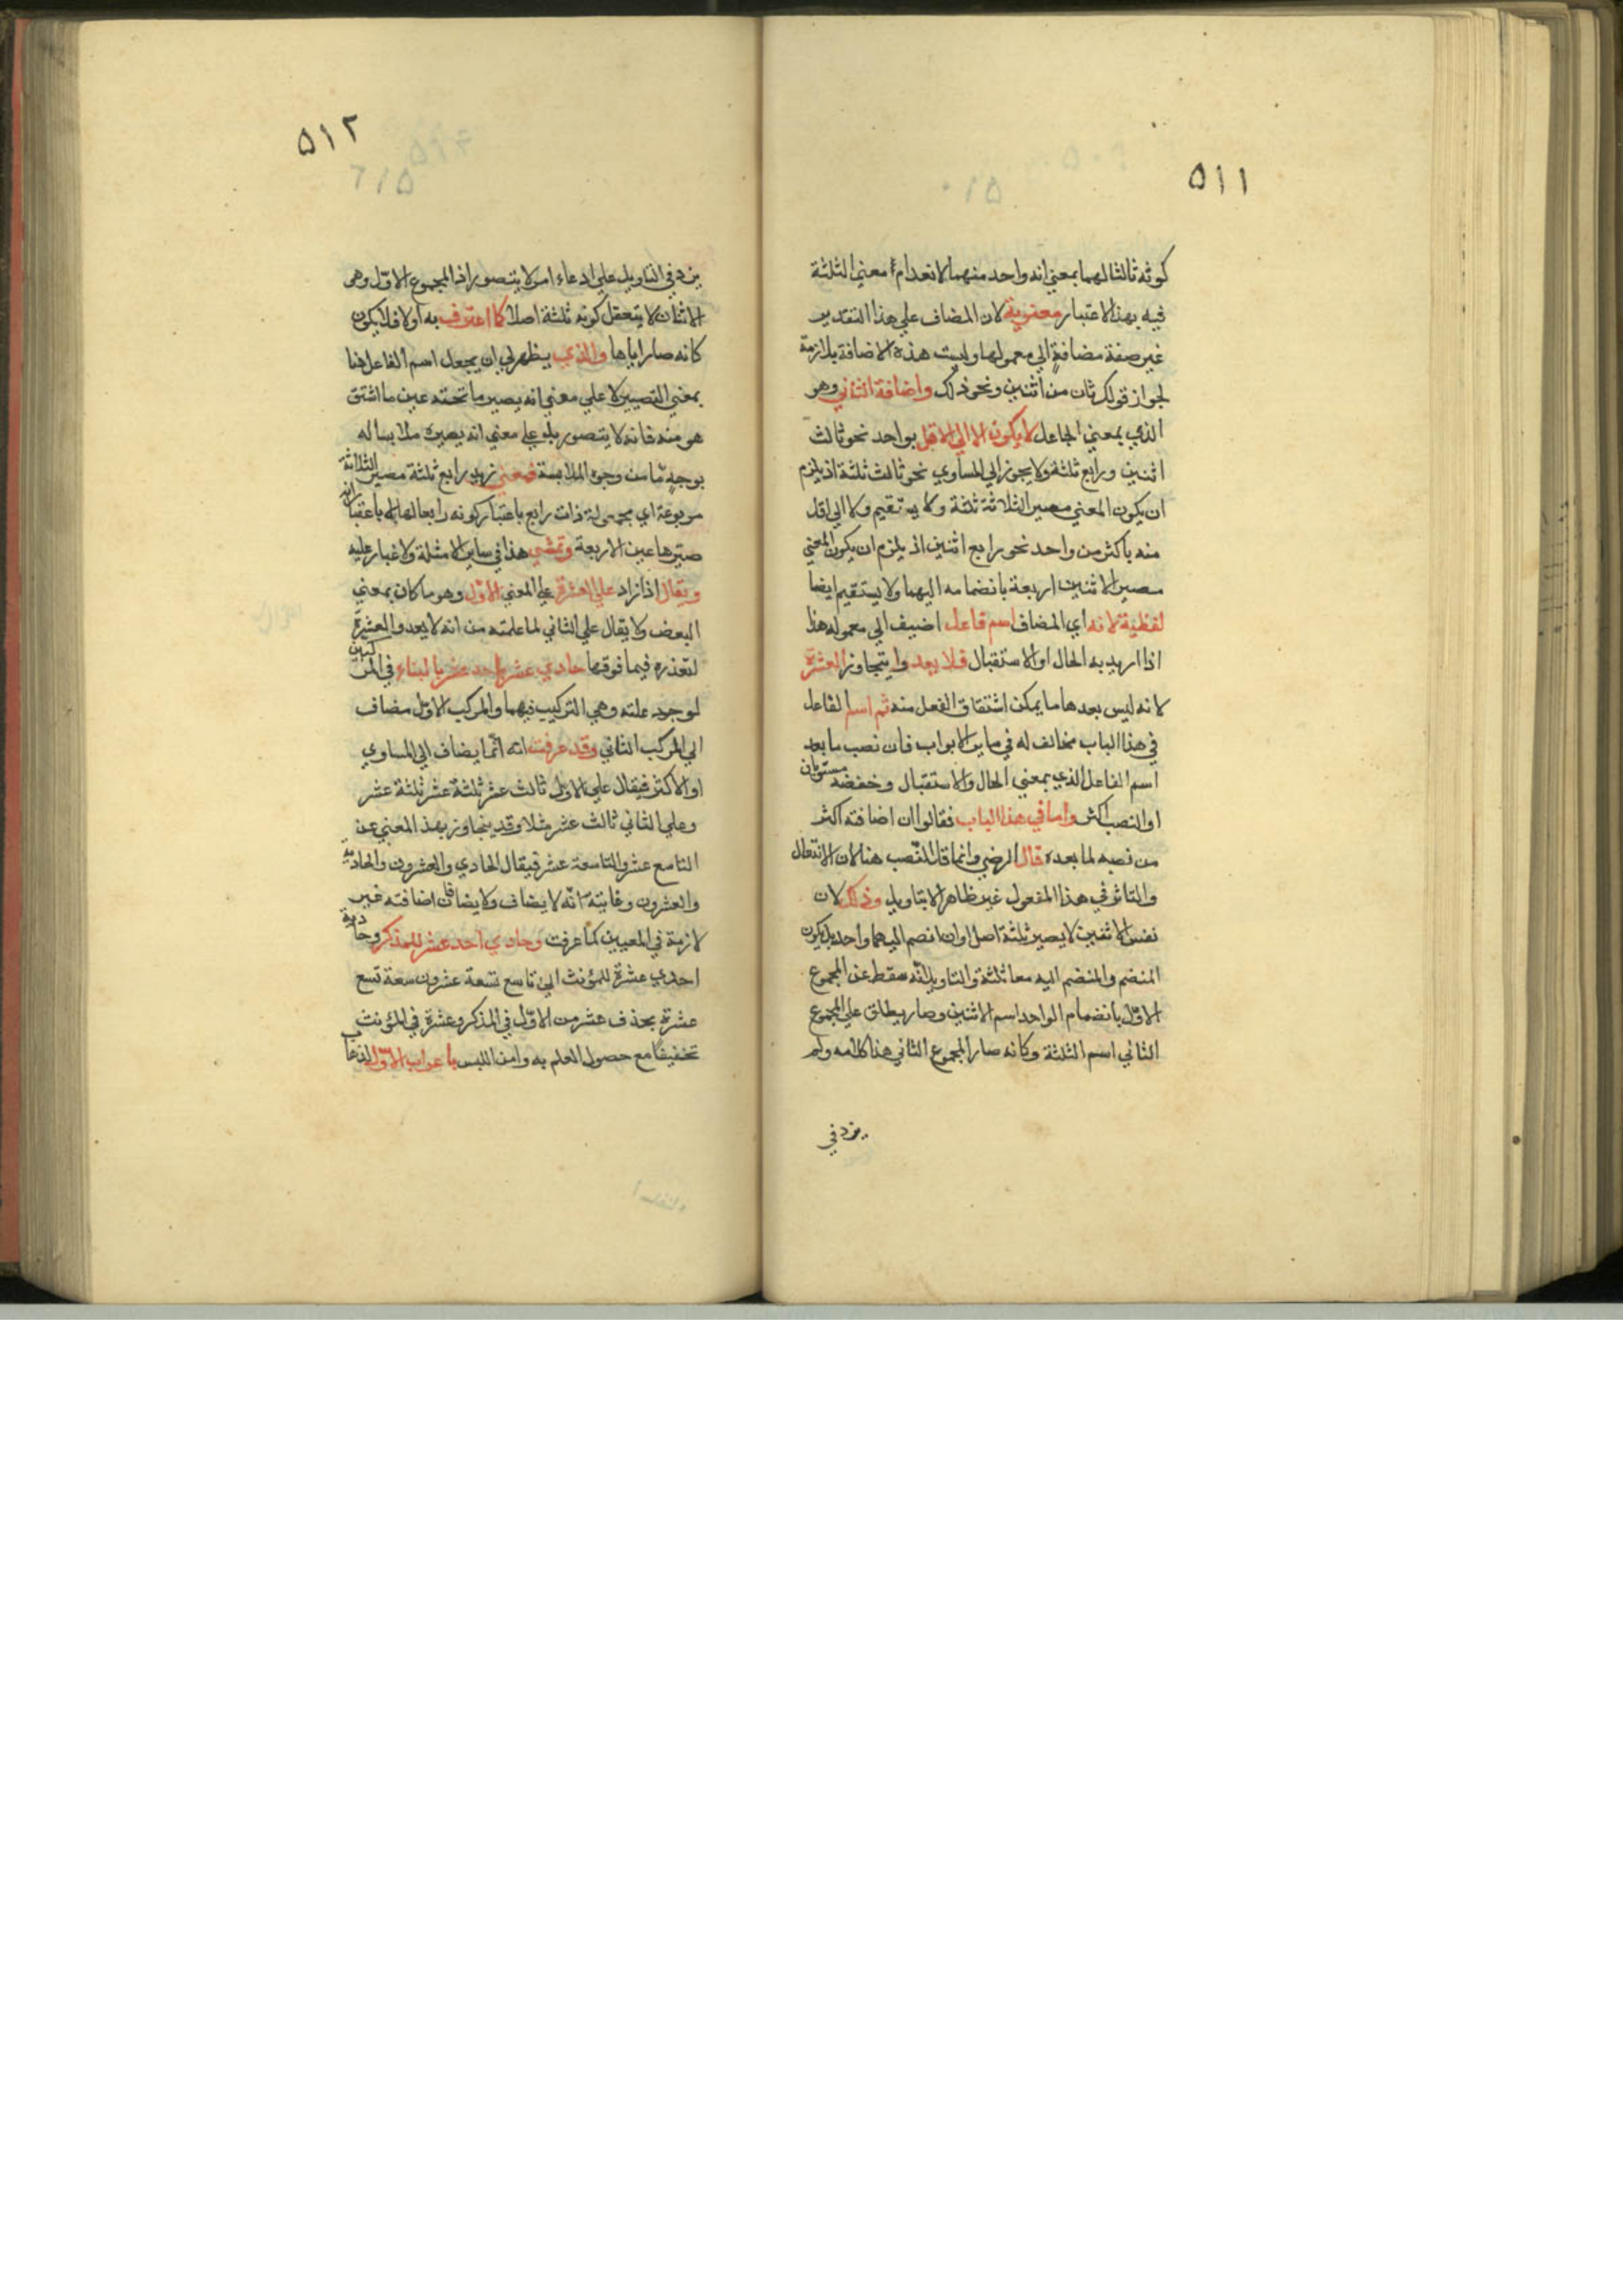 ٥١١
كونه ثالثا لهما بمعني انه واحد منهما لانعدام معني الثلثة
فيه بهذا الاعتبار معنوية لان المضاف علي هذا التقدير
غير صفة مضافة الي معمولها وليست هذه الاضافة بلازمة
لجواز قولك ثان من اثنين ونحو ذلك واضافة الثاني وهو
الذي بمعني الجاعل لا يكون الا الي الاقل بواحد نحو ثالث
اثنين ورابع ثلثة ولا يجوز الي المساوي نحو ثالث ثلثة اذ يلزم
ان يكون المعني مصير الثلاثة ثلثة ولا يستقيم ولا الي اقل
منه باكثر من واحد نحو رابع اثنين اذ يلزم ان يكون المعني
مصير الاثنين اربعة بانضمامه اليهما ولا يستقيم ايضا
لفظية لانه اي المضاف اسم فاعل اضيف الي معموله هذا
اذا اريد به الحال او الاستقبال فلا يعد وا يتجاوز العشرة
لانه ليس بعدها ما يمكن اشتقاق الفعل منه ثم اسم الفاعل
في هذا الباب مخالف له في ساير الابواب فان نصب ما بعد
اسم الفاعل الذي بمعني الحال والاستقبال وخفضه مستويان
او النصب اكثر واما في هذا الباب فقالوا ان اضافته اكثر
من نصبه لما بعده قال الرضي وانما قل النصب هنا لان الانفعال
والتاثر في هذا المفعول غير ظاهر الا بتاويل وذلك لان
نفس الاثنين لا يصير ثلثة اصلا وان انضم اليهما واحد بل يكون
المنضم والمنضم اليه معا ثلثة والتاويل انه سقط عن المجموع
الاول بانضمام الواحد اسم الاثنين وصار يطلق علي المجموع
الثاني اسم الثلثة وكانه صار المجموع الثاني هذا كلامه ولم
يزد في
٥١٢
يزد في التاويل علي ادعاء امر لا يتصور اذ المجموع الاول وهو
الاثنان لا يتعقل كونه ثلثة اصلا كما اعترف به اولا فلا يكون
كانه صار اياها والذي يظهر لي ان يجعل اسم الفاعل هنا
بمعني التصيير لا علي معني انه يصير ما تحته عين ما اشتق
هو منه فانه لا يتصور بل علي معني انه يصيره ملابسا له
بوجه ما من وجوه الملابسة فمعني زيد رابع ثلثة مصير الثلاثة
مربوعة اي ذات رابع باعتبار كونه رابعا لها لا باعتبار انه
صيرها عين الاربعة وتمشي هذا في ساير الامثلة ولا غبار عليه
ويقال اذا زاد علي العشرة علي المعني الاول وهو ما كان بمعني
البعض ولا يقال علي الثاني لما علمته من انه لا يعدو العشرة
لتعذره فيما فوقها حادي عشر احد عشر بالبناء في المركبين
لوجود علته وهي التركيب فيهما والمركب الاول مضاف
الي المركب الثاني وقد عرفت انه انما يضاف الي المساوي
او الاكثر فيقال علي الاول ثالث عشر ثلثة عشر ثلثة عشر
وعلي الثاني ثالث عشر مثلا وقد يتجاوز بهذ المعني عن
التاسع عشر والتاسعة عشر فيقال الحادي والعشرون والحادية
والعشرون وغايته انه لا يضاف ولا يضا فان اضافته غير
لازمة في المعيين كما عرفت وحادي احد عشر للمذكر وحادية
احدي عشرة للمؤنث الي تاسع تسعة عشر وتاسعة تسع
عشرة بحذف عشر من الاول في المذكر وعشرة في المؤنث
تخفيفا مع حصول العلم به وامن اللبس باعراب الاول